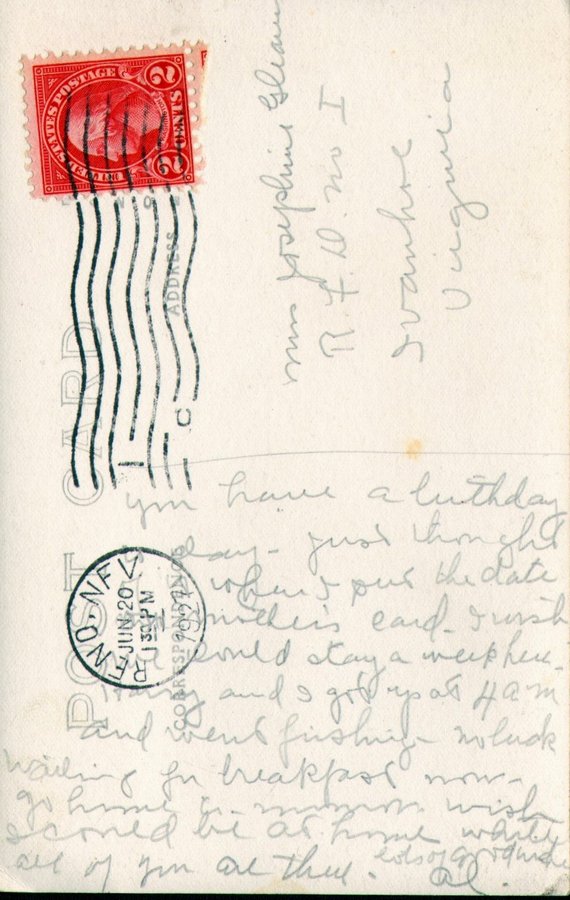 UNITED STATES POSTAGE
2 CENTS 2
POST CARD
ADDRESS
CORRESPONDENCE
RENO, NEV.
JUN 20
1 30 PM
1927
Miss Josephine
R. F. D. No 1
Ivanhoe
Virginia
you have a birthday
day - just thought
when I put the date
mothers card - I wish
could stay a week here.
Harry and I got up at 4 am
and went fishing - no luck
waiting for breakfast now -
go home wish
I could be at home while
all of you are there. lots of good
Al.